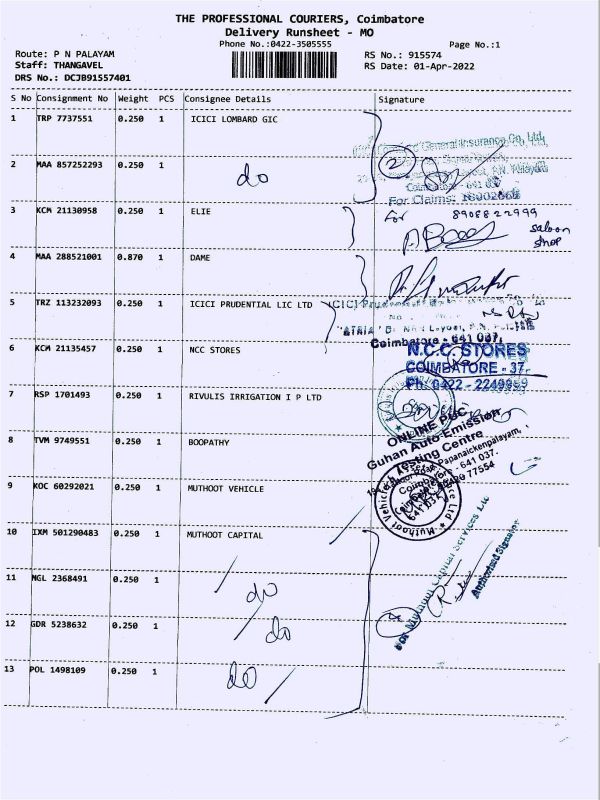 THE PROFESSIONAL COURIERS, Coimbatore
Delivery Runsheet - MO
Phone No.:0422-3505555
Page No.:1
Route: P N PALAYAM
RS No.: 915574
Staff: THANGAVEL
RS Date: 01-Apr-2022
DRS No.: DCJB91557401
S No Consignment No Weight PCS Consignee Details Signature
1 TRP 7737551 0.250 1 ICICI LOMBARD GIC
General Insurance Co. Ltd.
2 MAA 857252293 0.250 1 do
2
Coimbatore - 641 037
For Claims: 18002666
3 KCM 21130958 0.250 1 ELIE
for 8908822999
saloon
shop
4 MAA 288521001 0.870 1 DAME
5 TRZ 113232093 0.250 1 ICICI PRUDENTIAL LIC LTD
Coimbatore - 641 037.
6 KCM 21135457 0.250 1 NCC STORES
N.C.C. STORES
COIMBATORE - 37.
Ph: 0422 - 2249959
7 RSP 1701493 0.250 1 RIVULIS IRRIGATION I P LTD
ONLINE PUC
Guhan Auto Emission
Testing Centre
Papanaickenpalayam,
8 TVM 9749551 0.250 1 BOOPATHY
9 KOC 60292021 0.250 1 MUTHOOT VEHICLE
10 IXM 501290483 0.250 1 MUTHOOT CAPITAL
For Muthoot Capital Services Ltd
Authorised Signatory
11 NGL 2368491 0.250 1 do
12 GDR 5238632 0.250 1 do
13 POL 1498109 0.250 1 do